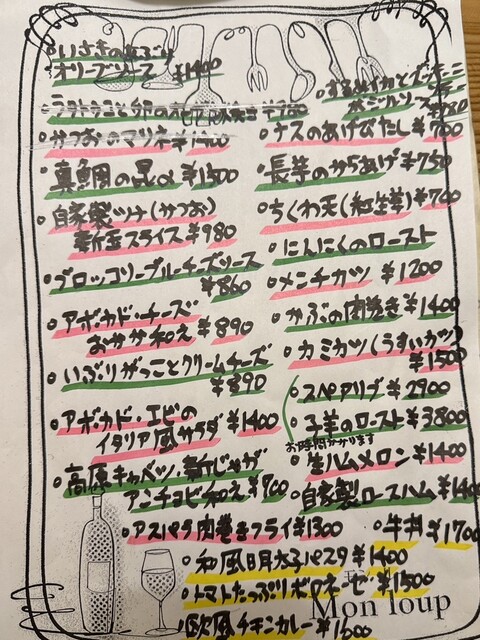 いさきのあぶり
オリーブソース ¥1400
ラタトゥユと卵の
かつおのマリネ ¥1400
真鯛の昆〆 ¥1500
自家製ツナ(かつお)
新玉スライス ¥980
ブロッコリーブルーチーズソース
¥860
アボカド・チーズ
おかか和え ¥890
いぶりがっことクリームチーズ
¥890
アボカド・エビの
イタリア風サラダ ¥1400
高原キャベツ・新じゃが
アンチョビ和え ¥700
アスパラ肉巻きフライ ¥1300
するめイカとズッキーニ
バジルソース
ナスのあげびたし ¥700
長芋のからあげ ¥750
ちくわ天(紅生姜) ¥700
にんにくのロースト
メンチカツ ¥1200
かぶの肉巻き ¥1400
カミカツ(うすいカツ)
¥1500
スペアリブ ¥2900
子羊のロースト ¥3800
お時間かかります
生ハムメロン ¥1400
自家製ロースハム ¥1400
牛丼 ¥1700
和風明太子パスタ ¥1400
トマトたっぷりボロネーゼ ¥1500
欧風チキンカレー ¥1600
Mon loup